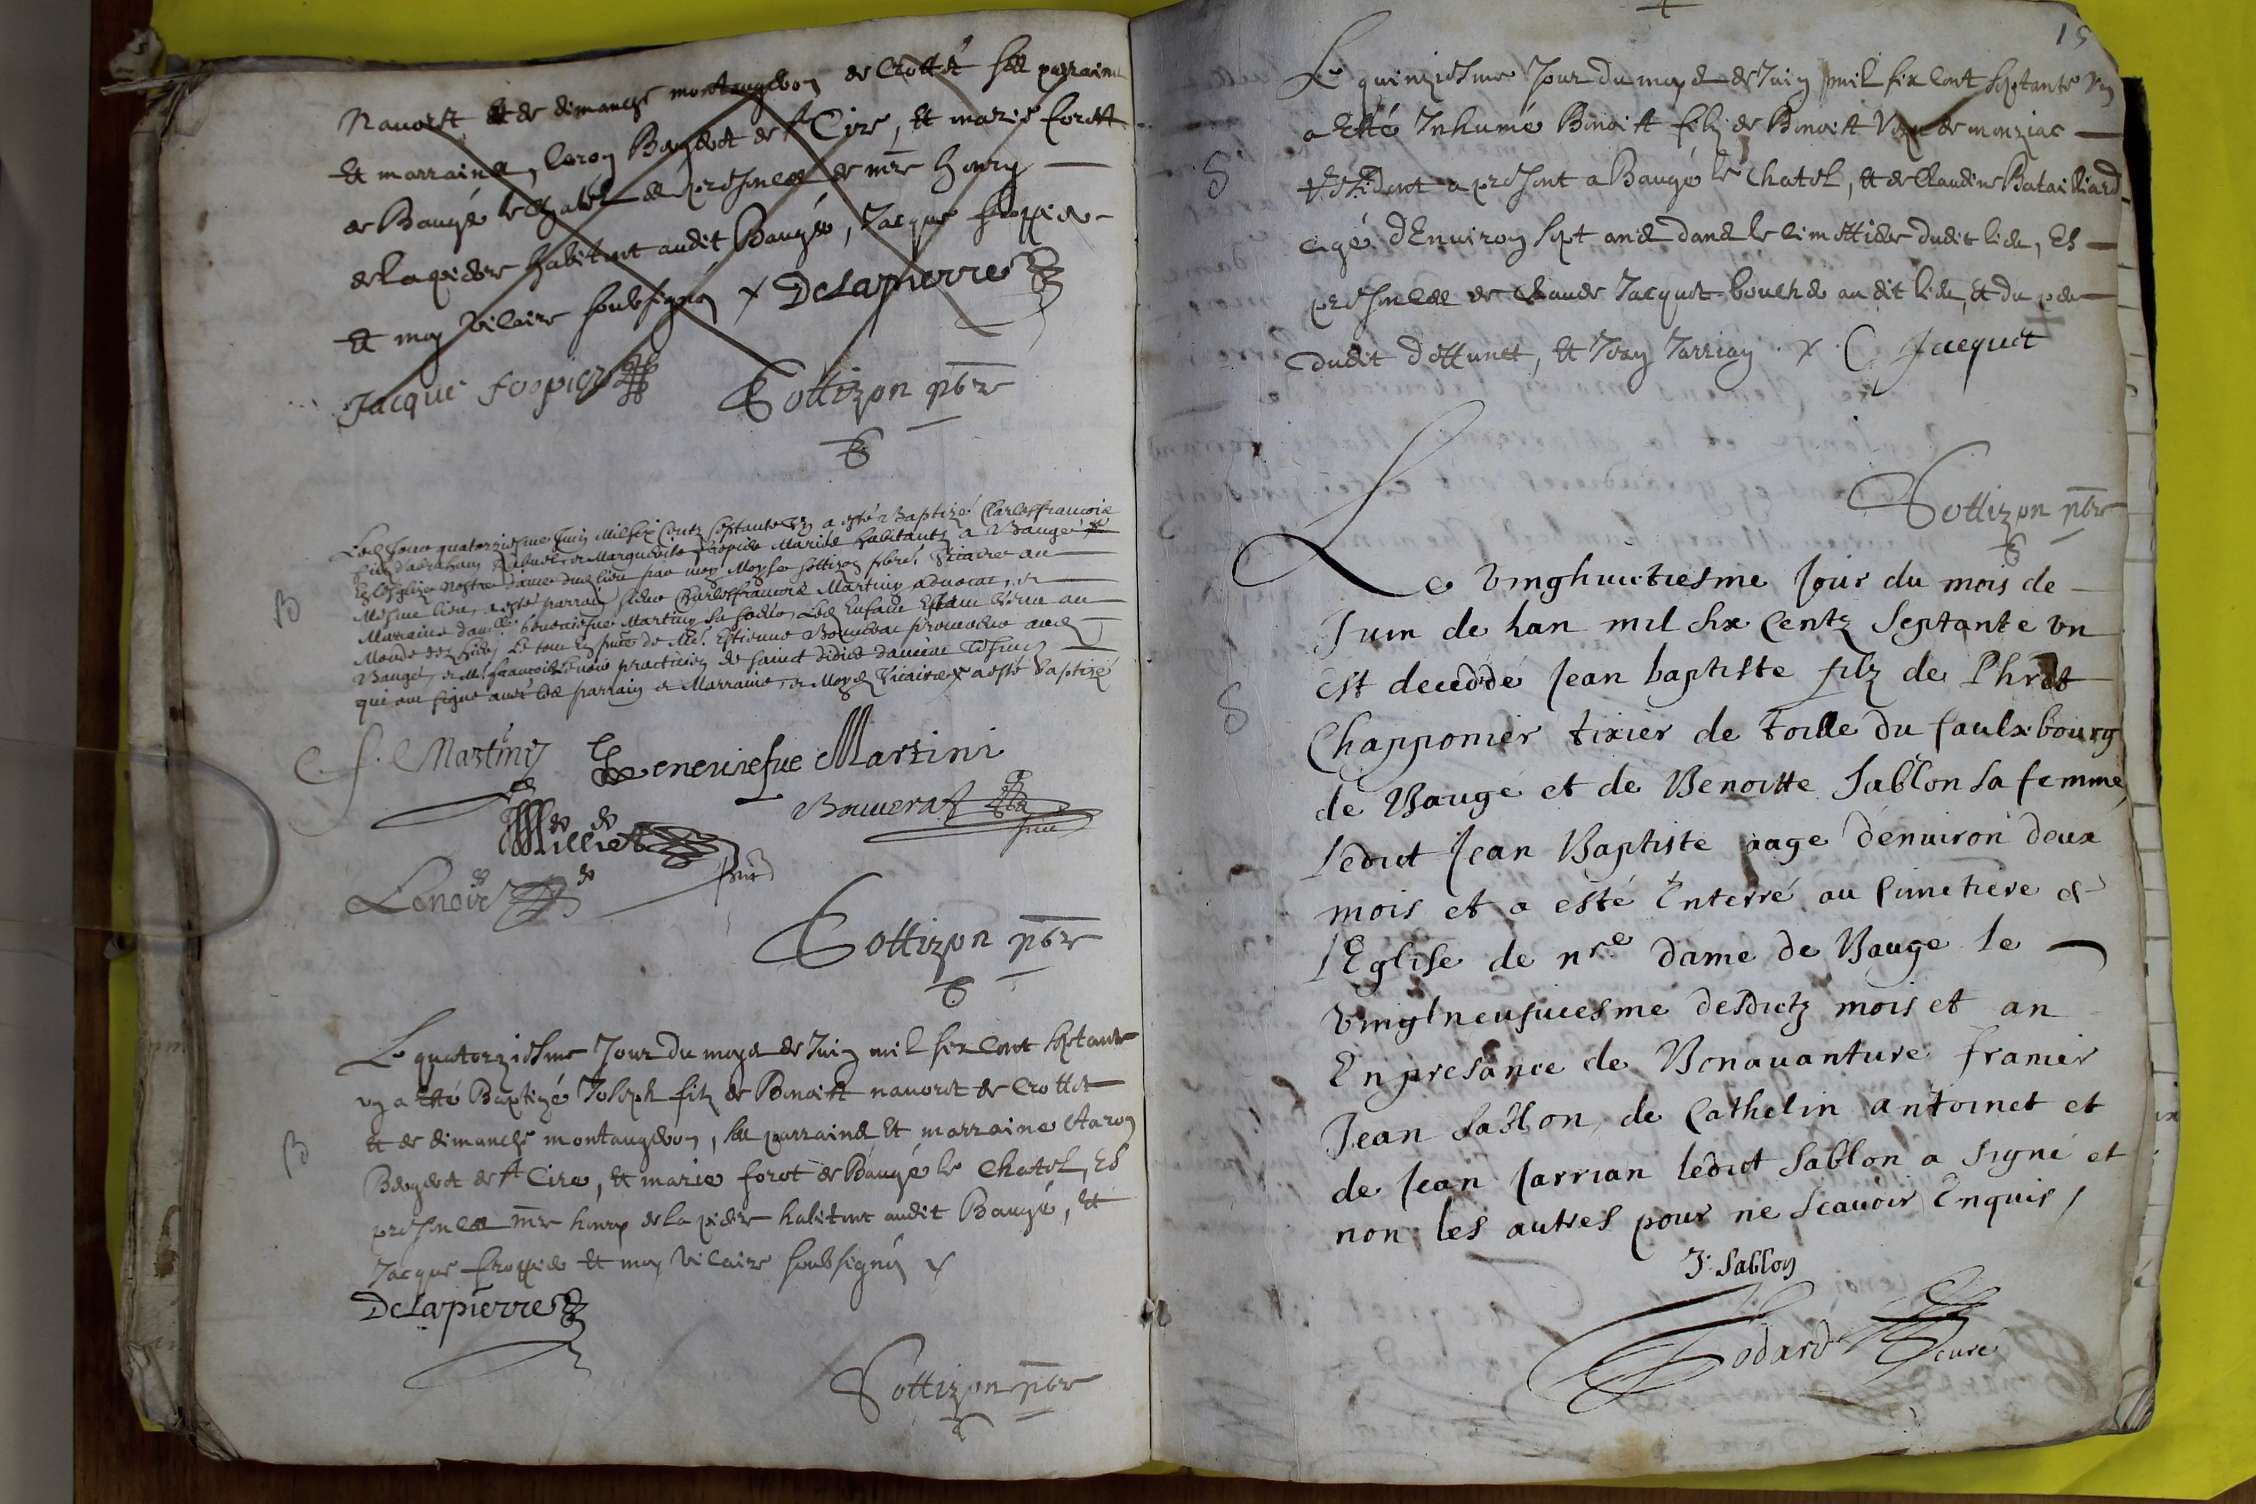 Navoret et de dimanche montangeron de Crottet ses parrains
Et marraine, Caron Bergeret de st Cire, et marie foret
de Baugé le Chatel es presences de mre henry
de la pierre habitant audit Baugé, Jacque froppier
Et moy vicaire soubsigné x DeLapierre
Jacque froppier Sottizon pbre
B
Led Jour quatorziesme Juin Mil six Centz septante un a esté Baptizé Charles francois
filz d'abraham et de Marguerite Mariés habitantz a Baugé
En l'Esglize nostre dame dud lieu par moy Moyse Sottizon pbre Vicaire au
Mesme lieu, a esté parrain sieur Charles francois Martiny advocat, et
Marraine dam.lle Geneviefve Martiny sa soeur, Led Enfant Estant venu au
Monde
Baugé, et Mr francois Lenoir practicien de sainct didier
qui ont signé avec les parrain et Marraine, et Moyd Vicaire x a esté baptizé
C. f. Martiny Geneviefve Martini
Bouverat
Milliet
Lenoir
Sottizon pbre
Le quatorziesme Jour du moys de Juin mil six Cent septante
B
un a Esté Baptizé Joseph filz de Benoist navoret de Crottet
et de dimanche montangeron, ses parrains Et marraine Caron
Bergeret de st Cire, et marie foret de Baugé le Chatel, Es
presences mre henry de la pierre habitant audit Baugé, et
Jacque froppier et moy vicaire soubsigné x
DeLapierre
Sottizon pbre
15
Le quinziesme Jour du moys de Juin mil six Cent septante un
a Esté Inhumé Benoist filz de Benoist de monziac
S
resident a present a Baugé le Chatel, et de Claudine Bataillard
agé d'Environ sept ans dans le cimettiere dudit lieu, Es
presences de Claude Jacquet boucher audit lieu, et du pere
dudit deffunct, et Jean Jarrian x C Jacquet
Sottizon pbre
Le vinghuictiesme Jour du mois de
Juin de lan mil six Centz septante vn
S
est decedde Jean baptiste filz de Phret
Chapponier tixier de toille du faulxbourg
de Baugé et de Benoitte Sablon sa femme,
ledict Jean Baptiste aage denuiron deux
mois et a esté Enterré au Cimetiere d
l'Eglise de nre dame de Baugé le
vingtneufuiesme desdictz mois et an
En presance de Bonauanture franier
Jean Sablon, de Cathelin antoinet et
de Jean Jarrian ledict Sablon a signé et
non les autres pour ne scauoir Enquis /
J. Sablon
Godard curé